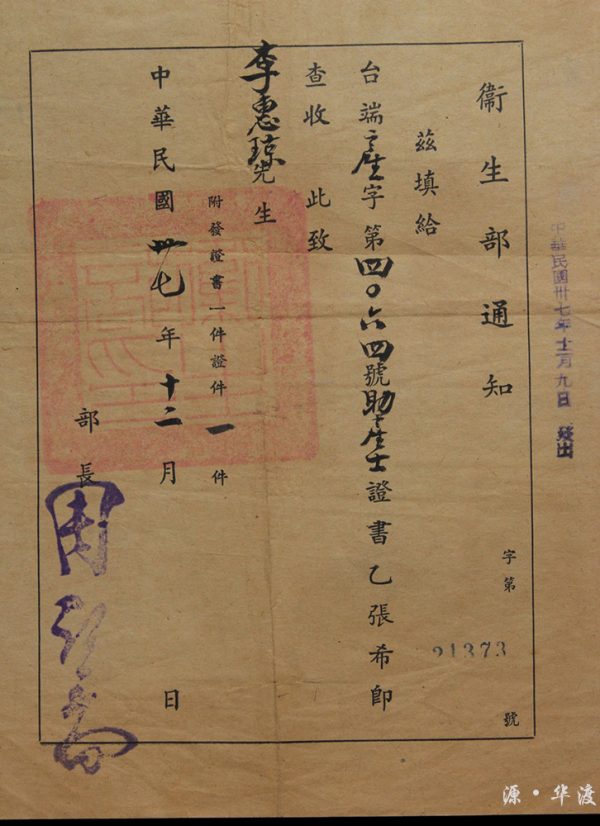 中華民國卅七年十二月九日 發出
衞生部通知
字第21373號
茲填給
台端產字第四〇六四號助產士證書乙張希卽
查收 此致
李惠琼先生
附發證書一件證件一件
中華民國卅七年十二月 日
部長周詒春
源·华渡